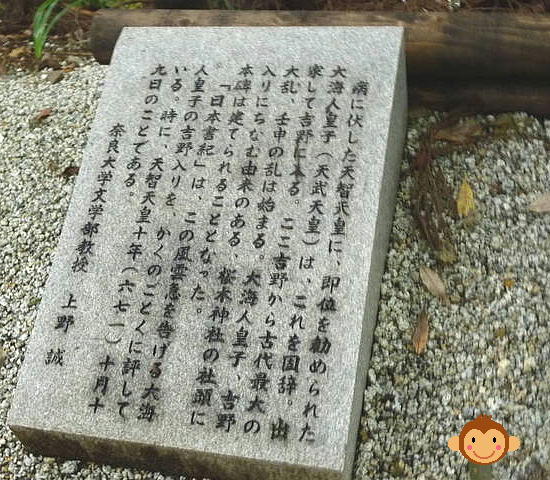 病に伏した天智天皇に、即位を勧められた
大海人皇子（天武天皇）は、これを固辞。出
家して吉野に入る。ここ吉野から古代最大の
大乱、壬申の乱は始まる。大海人皇子、吉野
入りにちなむ由来のある、桜木神社の社頭に
本碑は建てられることとなった。
「日本書紀」は、この風雲急を告げる大海
人皇子の吉野入りを、かくのごとくに評して
いる。時に、天智天皇十年（六七一）十月十
九日のことである。
奈良大学文学部教授　上野　誠